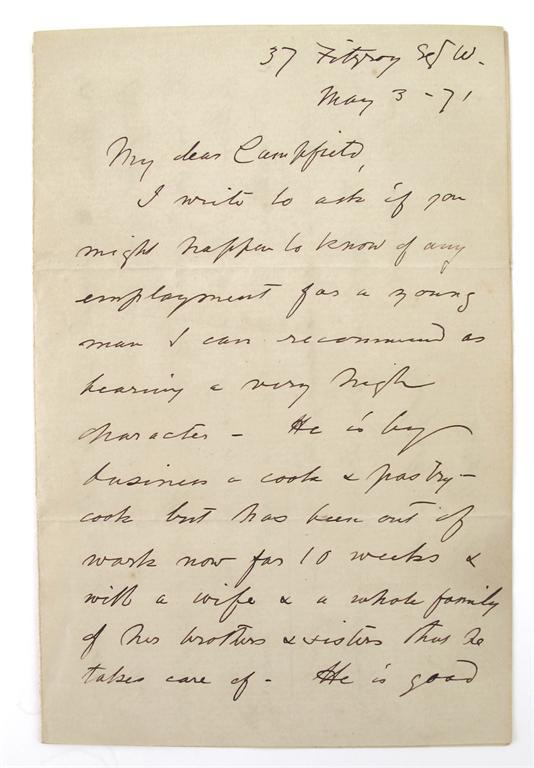 37 Fitzroy Sq W.
May 3 - 71
My dear Campfield,
I write to ask if you
might happen to know of any
employment for a young
man I can recommend as
bearing a very high
character - He is by
business a cook & pastry-
cook but has been out of
work now for 10 weeks &
with a wife & a whole family
of his brothers & sisters that he
takes care of - He is good